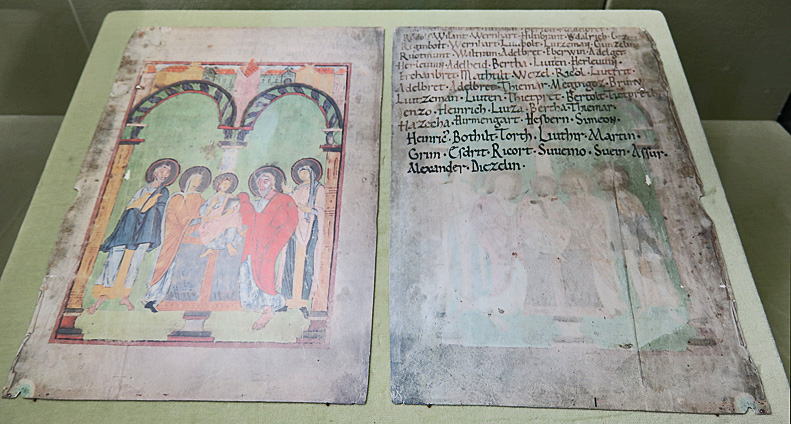 Wisant · Wernhart · Hiltibrant · Vdalrich ·
Reginbolt · Wernhart · Liupolt · Lutzeman · Gunzelin
Ruotmunt · Waltnun · Adelbret · Eberwin · Adelger
Herleuuin · Adelheid · Bertha · Liuten · Herleuuin
Erchanbret · Mathilt · Wezel · Racol · Liutfrit ·
Adelbret · Adelbret · Thiemar · Megingoz · Brun
Lutzeman · Liuten · Thietpret · Bertolt · Tietprett
enzo · Heinrich · Liuza · Bertha · Thiemar
Hazecha · Hirmengart · Hesbern · Simeon ·
Heinric · Bothilt · Torth · Liuthr · Martin ·
Grim · Esgrit · Ricort · Suueino · Suein · Assur ·
Alexander · Diezelin ·